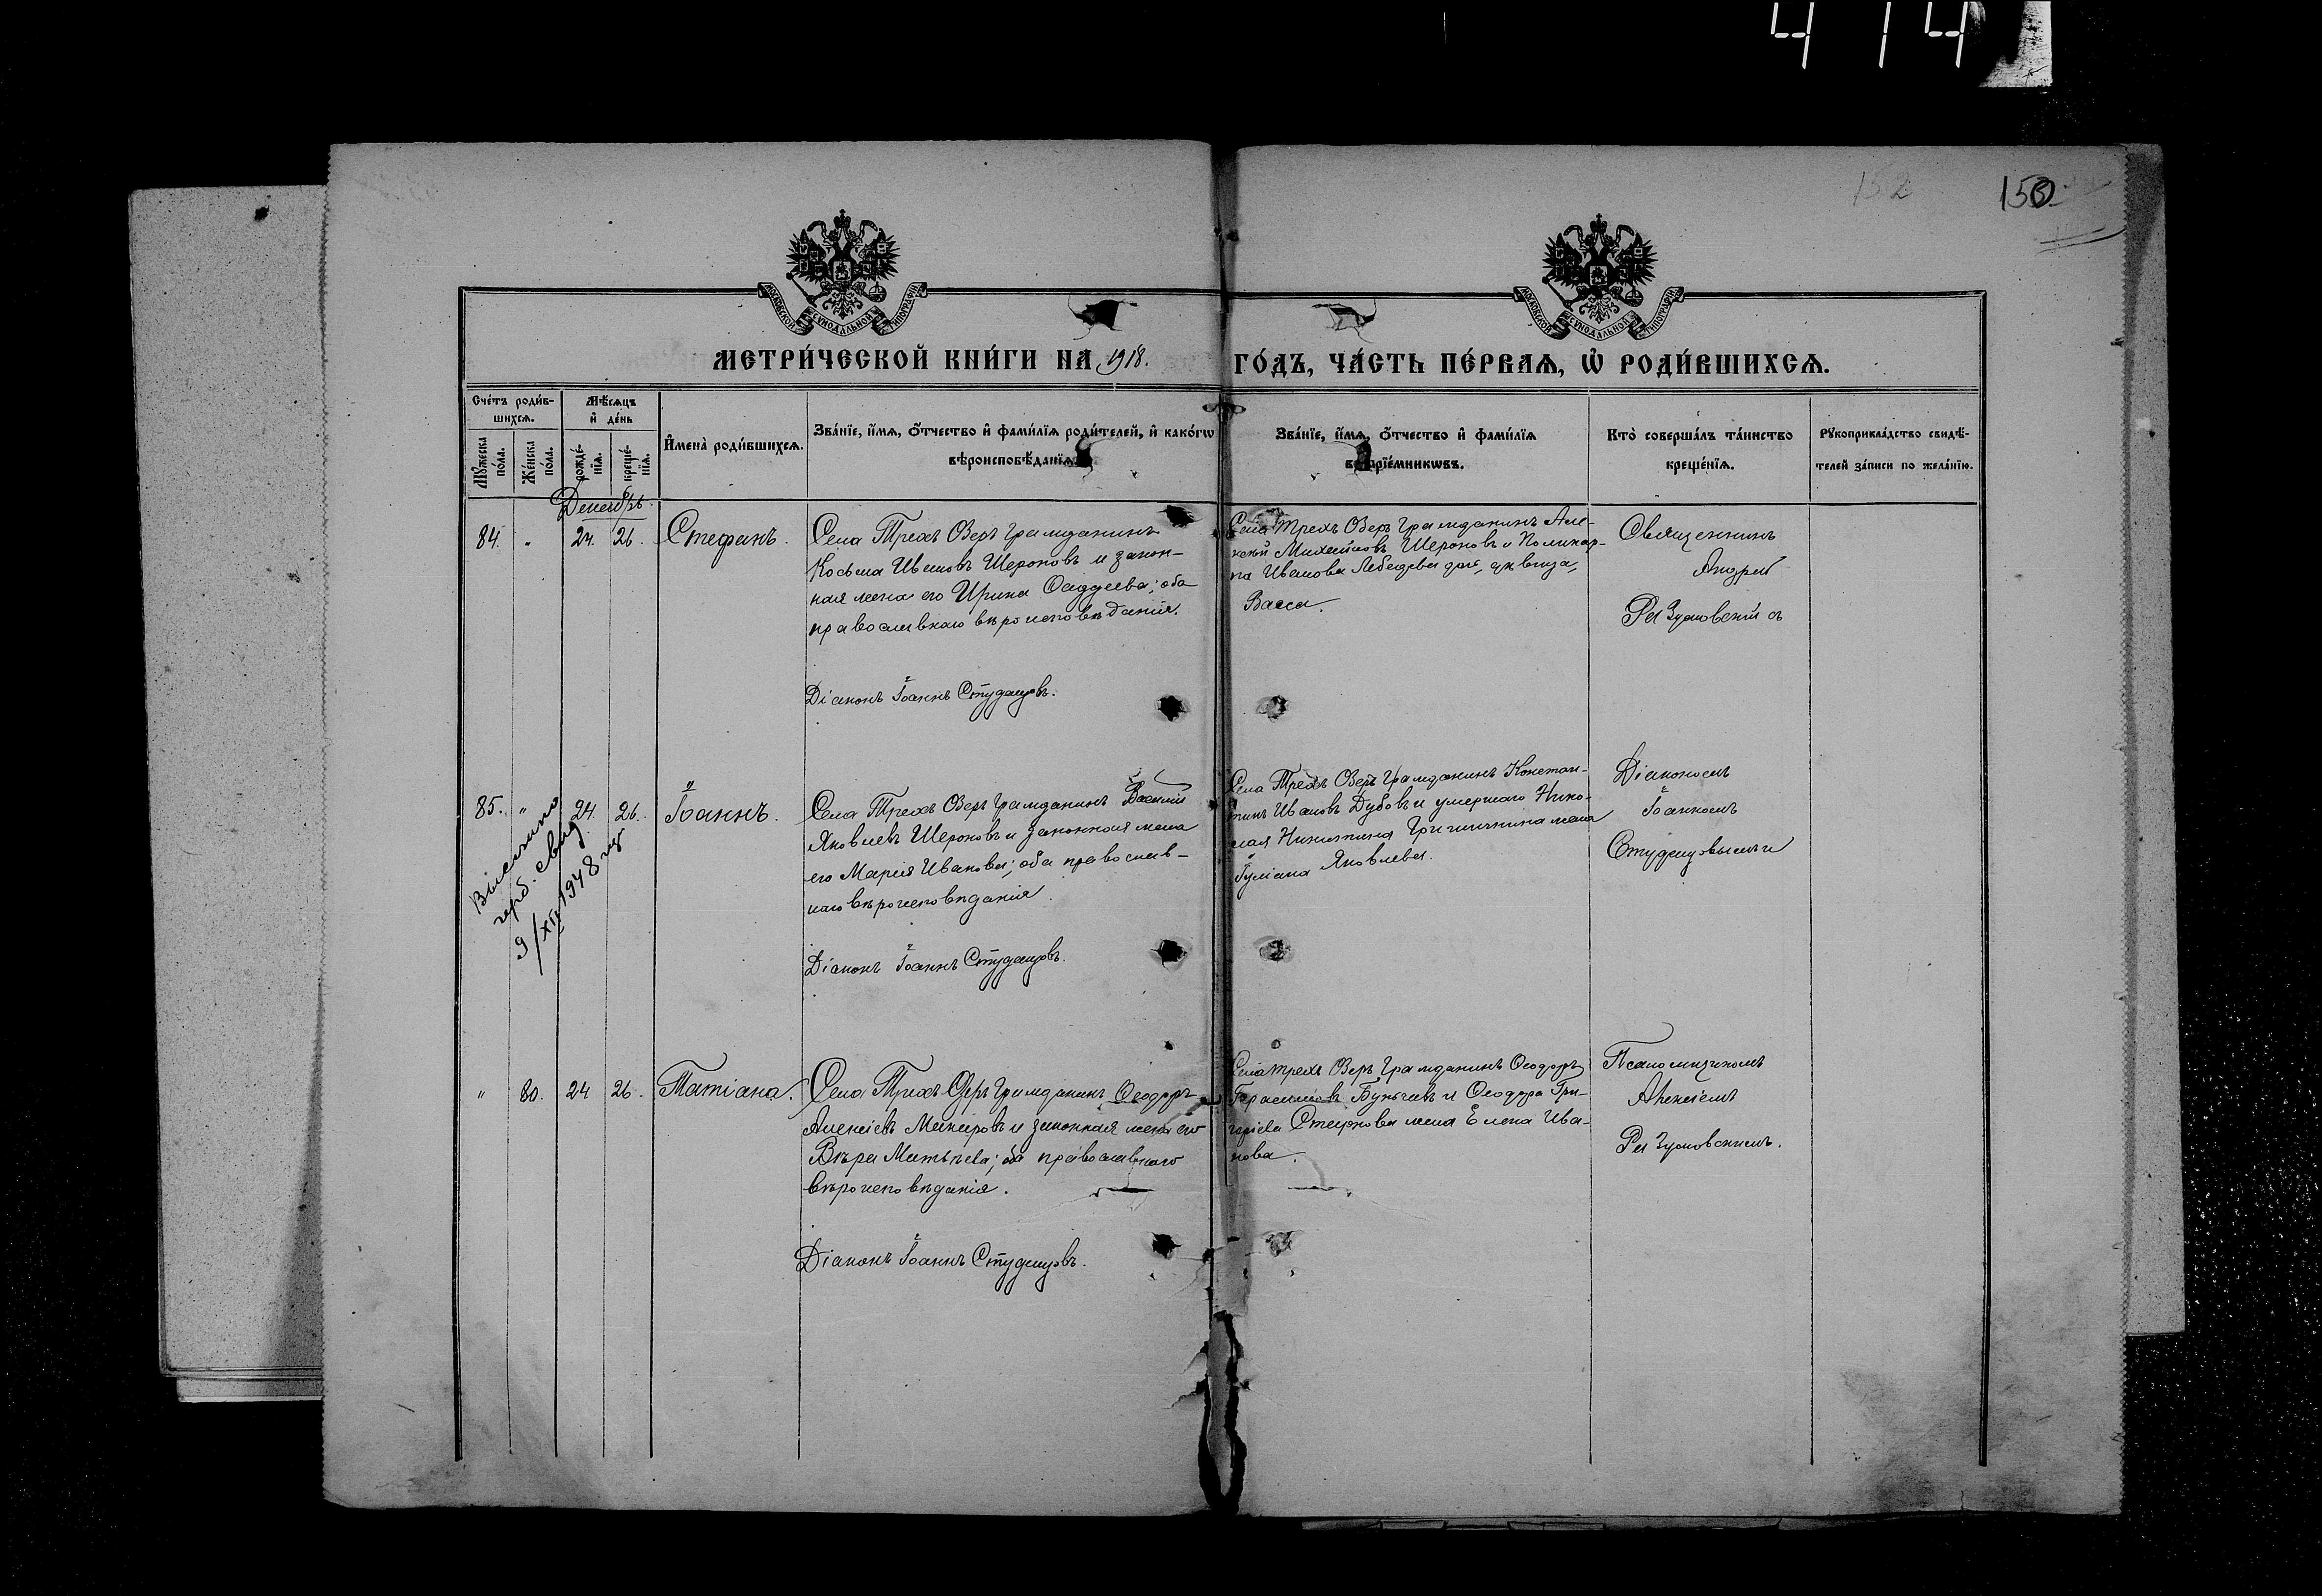 4 14
152
150
МОСКОВСКОЙ СѴНОДАЛЬНОЙ ТИПОГРАФІИ
МОСКОВСКОЙ СѴНОДАЛЬНОЙ ТИПОГРАФІИ
МЕТРИ́ЧЕСКОЙ КНИ́ГИ НА 1918.
ГО́ДЪ, ЧА́СТЬ ПЕ́РВАѦ, Ѡ҆ РОДИ́ВШИХСѦ.
Сче́тъ роди́в-
шихсѧ.
Мѣ́сѧцъ
и҆ де́нь
Мꙋ́жеска по́ла.
Же́нска по́ла.
рожде́-
нїѧ.
креще́-
нїѧ.
И҆мена̀ роди́вшихсѧ.
Зва́нїе, и҆́мѧ, ѻ҆́тчество и҆ фами́лїѧ роди́телей, и҆ како́гѡ
вѣроисповѣ́данїѧ
Зва́нїе, и҆́мѧ, ѻ҆́тчество и҆ фами́лїѧ
воспрїе́мникѡвъ.
Кто̀ соверша́лъ та́инство
креще́нїѧ.
Рꙋкоприкла́дство свидѣ́-
телей за́писи по жела́нїю.
Декабрь
84. " 24. 26. Стефанъ.
Села Трехъ Озеръ гражданинъ
Косьма Ивановъ Шероновъ и закон-
ная жена его Ирина Ѳаддеева; оба
православнаго вѣроисповѣданія.
Діаконъ Іоаннъ Студенцовъ.
Села Трехъ Озеръ гражданинъ Але-
ксѣй Михайловъ Шероновъ и Поликар-
па Иванова Лебедева дочь, девица,
Васса.
Священникъ
Андрей
Разумовскій съ
85. " 24. 26. Іоаннъ.
Выслано
герб. свид.
9/XII 1948 г.
Села Трехъ Озеръ гражданинъ Василій
Яковлевъ Шероновъ и законная жена
его Марія Иванова; оба православ-
наго вѣроисповѣданія.
Діаконъ Іоаннъ Студенцовъ.
Села Трехъ Озеръ гражданинъ Констан-
тинъ Ивановъ Дубовъ и умершаго Нико-
лая Никитина жена
Іуліана Яковлева.
Діакономъ
Іоанномъ
Студенцовымъ и
" 80. 24 26. Татіана.
Села Трехъ Озеръ гражданинъ Ѳеодоръ
Алексіевъ и законная жена его
Вѣра Матвѣева; оба православнаго
вѣроисповѣданія.
Діаконъ Іоаннъ Студенцовъ.
Села Трехъ Озеръ гражданинъ Ѳеодоръ
Герасимовъ и Ѳеодора Гри-
горіева Смирнова жена Елена Ива-
нова.
Псаломщикомъ
Алексіемъ
Разумовскимъ.